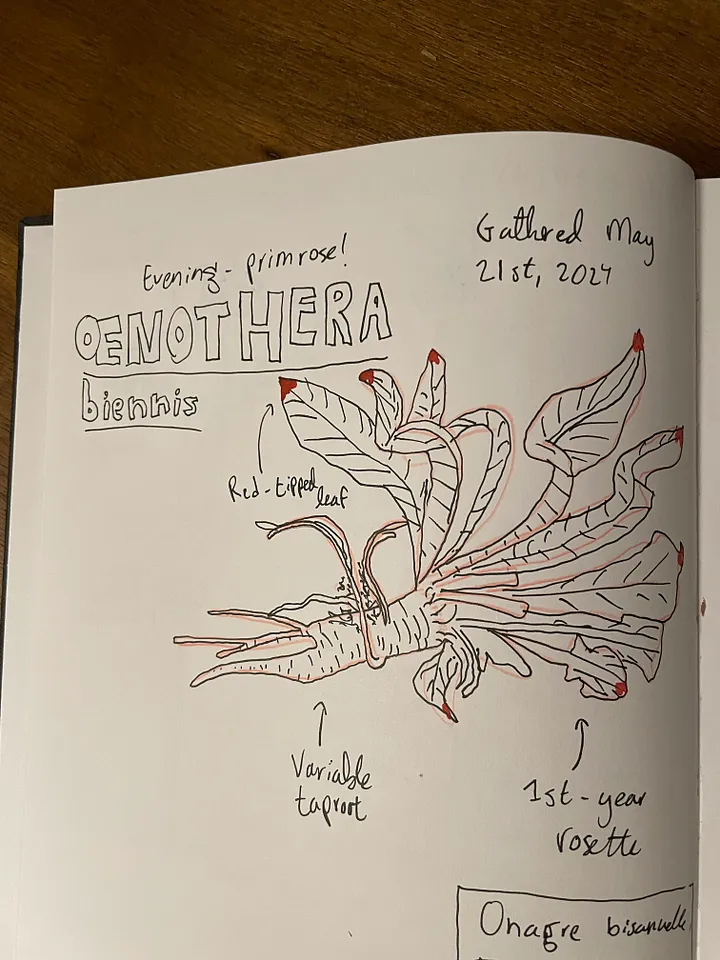 Evening-primrose!
OENOTHERA
biennis
Gathered May
21st, 2024
Red-tipped leaf
Variable
taproot
1st-year
rosette
Onagre bisannuelle